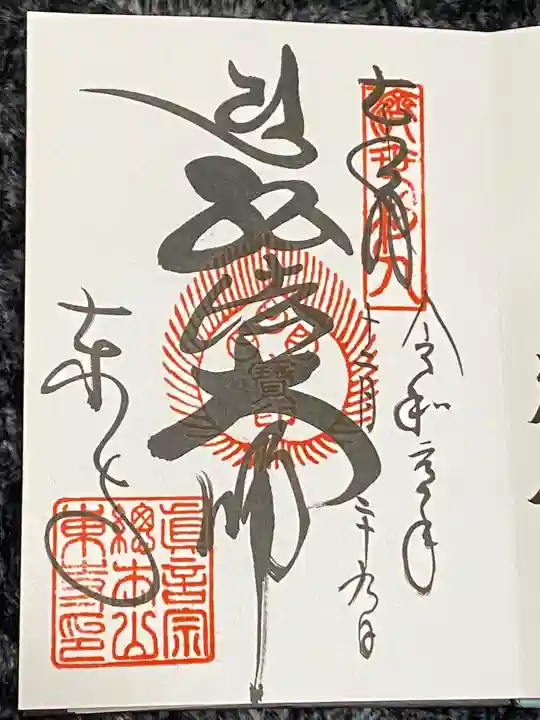 奉拝
令和 年
十二月二十九日
弘法大師
寶
東寺
眞言宗
總本山
東寺印